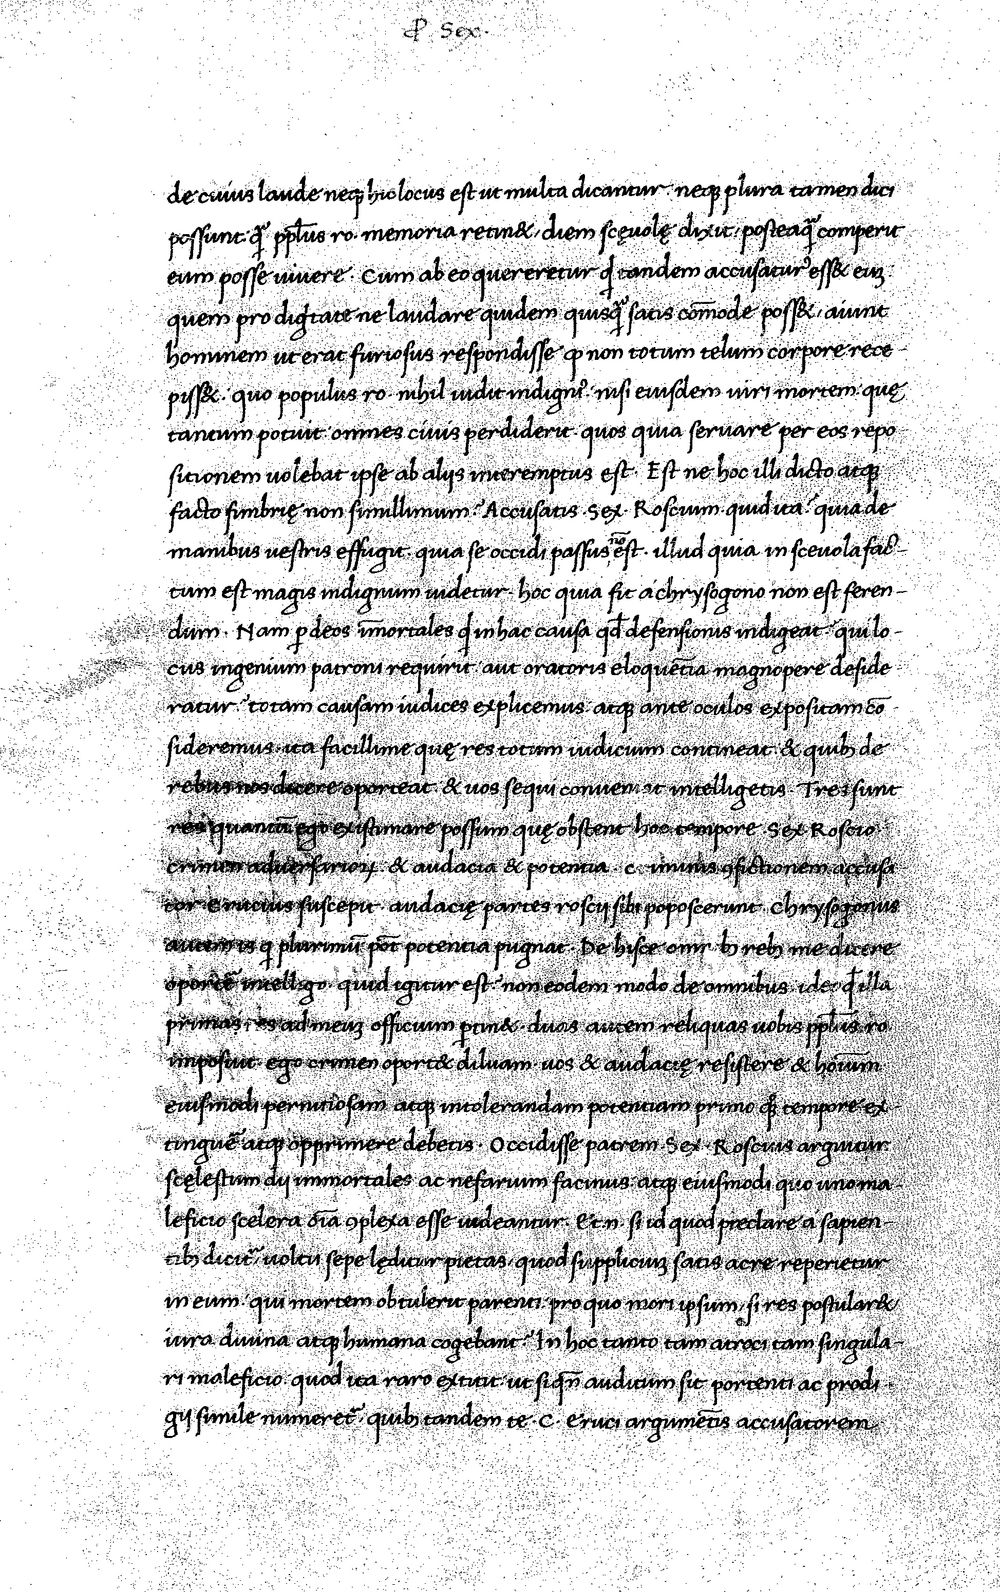 ꝓ Sex.
de cuius laude neqꝫ hic locus est ut multa dicantur neqꝫ plura tamen dici
possunt q̃ pp̄lus ro. memoria retin&, diem scęuolę dixit, posteaq̃ comperit
eum posse uiuere. Cum ab eo quereretur qd́ tandem accusatur᷒ ess& euꝫ
quem pro dig̃tate ne laudare quidem quisq̃ satis com̄ode poss&, aiunt
hominem ut erat furiosus respondisse ꝙ non totum telum corpore rece-
piss&. quo populus ro. nihil uidit indigni᷒. nisi eiusdem uiri mortem. quę
tantum potuit. omnes ciuis perdiderit. quos quia seruare per eos repo-
sitionem uolebat ipse ab alijs interemptus est. Est ne hoc illi dicto atqꝫ
facto fimbrię non simillimum? Accusatis Sex. Roscium. quid ita? quia de
manibus uestris effugit. quia se occidi passus nō est. illud quia in sceuola fac-
tum est magis indignum uidetur. hoc quia fit a chrysogono non est feren-
dum. Nam ꝑ deos īmortales qd́ in hac causa qd̄ defensionis indigeat? qui lo-
cus ingenium patroni requirit aut oratoris eloquētia magnopere deside
ratur? totam causam iudices explicemus. atqꝫ ante oculos expositam cō-
sideremus. ita facillime quę res totum iudicium contineat. & quibꝫ de
rebus nos dicere oporteat. & uos sequi conueniat intelligetis. Tres sunt
res quantū ego existimare possum quę obstent hoc tempore Sex Roscio
crimen aduersarioꝝ & audacia & potentia. c. iminis ꝯfictionem accusa
tor Erucius suscepit. audacię partes roscij sibi poposcerunt. Chrysogonus
autem is q̇ plurimū pōt potentia pugnat. De hisce omībꝫ rebꝫ me dicere
oportē intelligo. quid igitur est? non eodem modo de omnibus. ideo qd̄ illa
primas res ad meuꝫ officium ꝑtin&. duas autem reliquas uobis pp̄lus ro
imposuit. ego crimen oport& diluam. uos & audacię resistere & hoīum
eiusmodi pernitiosam atqꝫ intolerandam potentiam primo qꝫ tempore ex-
tinguē atqꝫ opprimere debetis. Occidisse patrem Sex. Roscius arguitur.
scęlestum dij immortales ac nefarium facinus. atqꝫ eiusmodi quo uno ma-
leficio scelera oīa ꝯplexa esse uideantur. Et.n. si id quod preclare a sapien-
tibꝫ dicit᷑, uoltu sepe lęditur pietas, quod suppliciuꝫ satis acre reperietur
in eum. qui mortem obtulerit parenti. pro quo mori ipsum, si res postular&,
iura diuina atqꝫ humana cogebant? In hoc tanto tam atroci tam singula-
ri maleficio. quod ita raro extitit. ut si qn̄ auditum sit portenti ac prodi-
gij simile numeret᷑, quibꝫ tandem te. C. Eruci argumētis accusatorem